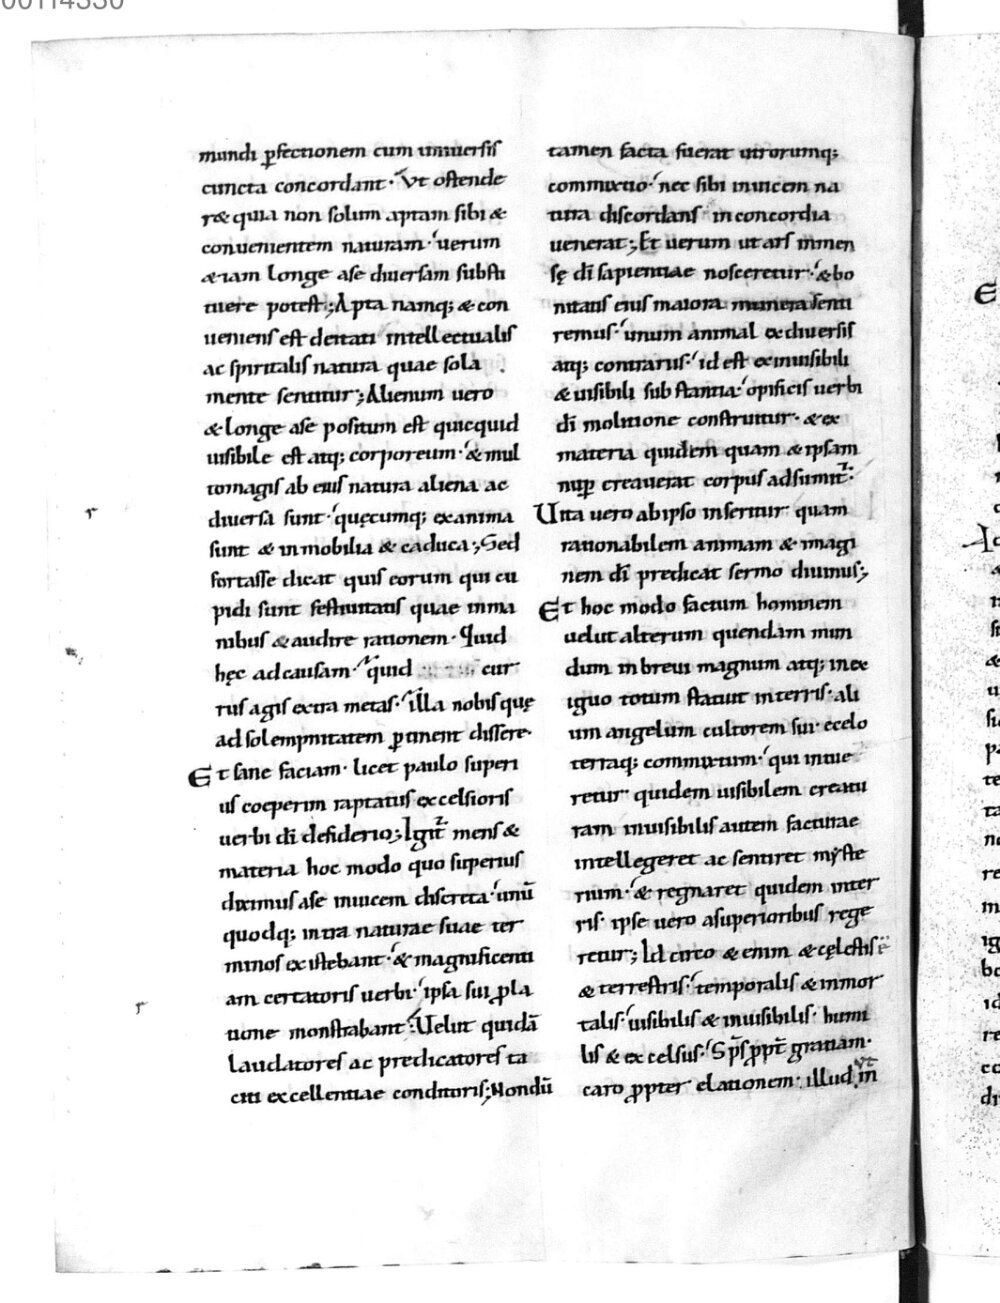 00114330
mundi ꝑfectionem cum uniuersis
cuncta concordant· Vt ostende
r& quia non solum aptam sibi &
conuenientem naturam· uerum
&iam longe a se diuersam substi
tuere potest; Apta namq; & con
ueniens est deitati intellectualis
ac spiritalis natura quae sola
mente sentitur; Alienum uero
& longe a se positum est quicquid
uisibile est atq; corporeum· & mul
to magis ab eius natura aliena ac
diuersa sunt· quęcumq; exanima
sunt & inmobilia & caduca; Sed
fortasse dicat quis eorum qui cu
pidi sunt festiuitatis quae in ma
nibus & audire rationem· Quid
hęc ad causam· quid cur
rus agis extra metas· illa nobis quę
ad solempnitatem ꝑtinent dissere·
Et sane faciam· licet paulo superi
us coeperim raptatus excelsioris
uerbi dī desiderio; Igit᷑ mens &
materia hoc modo quo superius
diximus a se inuicem discreta· unū
quodq; intra naturae suae ter
minos existebant· & magnificenti
am certatoris uerbi· ipsa sui ꝓla
tione monstrabant· Uelut quidā
laudatores ac predicatores ta
citi excellentiae conditoris; Nondū
tamen facta fuerat utrorumq;
commixtio· nec sibi inuicem na
tura discordans in concordia
uenerat; Et uerum ut ars inmen
sę dī sapientiae nosceretur· & bo
nitatis eius maiora munera senti
remus· unum animal ex diuersis
atq; contrariis· id est ex inuisibili
& uisibili substantia· opificis uerbi
dī molitione construitur· & ex
materia quidem quam & ipsam
nuꝑ creauerat corpus adsumit᷑·
Uita uero ab ipso inseritur quam
rationabilem animam & imagi
nem dī predicat sermo diuinus;
Et hoc modo factum hominem
uelut alterum quendam mun
dum in breui magnum atq; in ex
iguo totum statuit in terris· ali
um angelum cultorem sui· e celo
terraq; commixtum· qui intue
retur quidem uisibilem creatu
ram inuisibilis autem facturae
intellegeret ac sentiret myste
rium· & regnaret quidem in ter
ris· ipse uero a superioribus rege
retur; Idcirco & enim & cęlestis
& terrestris· temporalis & inmor
talis· uisibilis & inuisibilis· humi
lis & excelsus· Sp̄s ꝓpt᷑ gratiam·
caro ꝓpter elationem· illud ut in